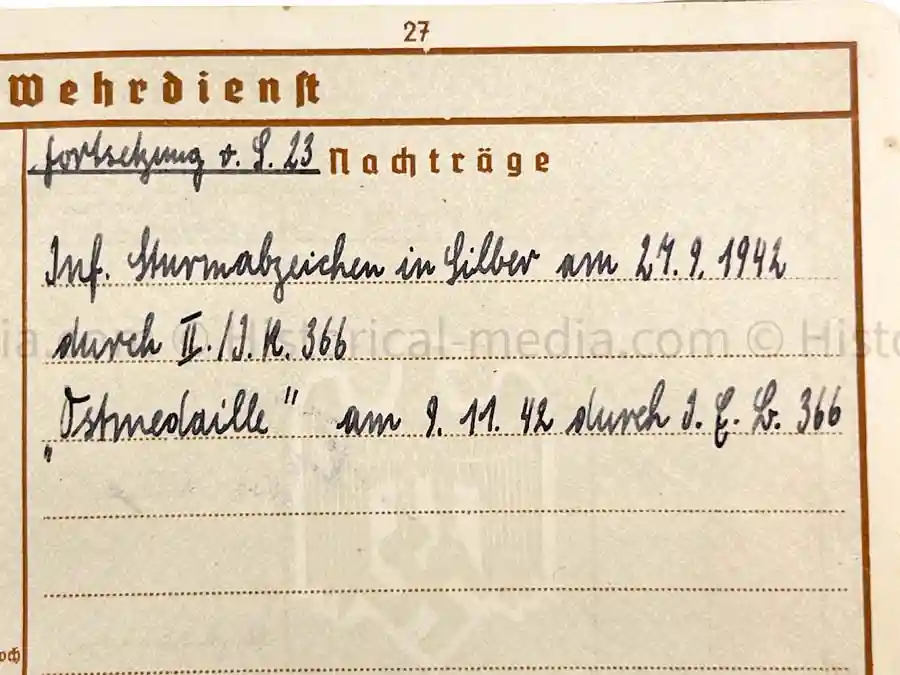 27
Wehrdienst
Fortsetzung v. S. 23 Nachträge
Inf. Sturmabzeichen in Silber am 27. 9. 1942
durch II./I. R. 366
© Historical-media.com © Histo
"Ostmedaille" am 9. 11. 42 durch I. E. B. 366
och